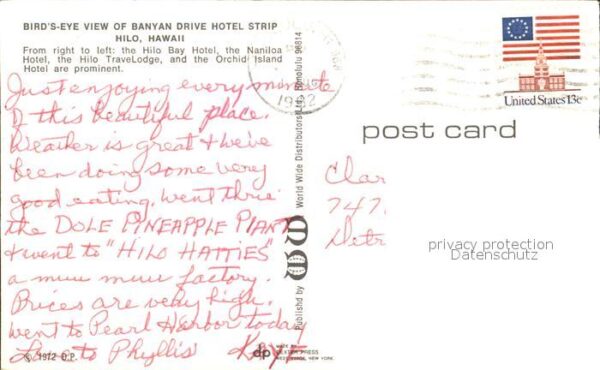 BIRD'S-EYE VIEW OF BANYAN DRIVE HOTEL STRIP
HILO, HAWAII
From right to left: the Hilo Bay Hotel, the Naniloa
Hotel, the Hilo TraveLodge, and the Orchid Island
Hotel are prominent.
Just enjoying every minute
of this beautiful place.
Weather is great & we've
been doing some very
good eating. Went thru
the DOLE PINEAPPLE PLANT
& went to "HILO HATTIES"
a muu muu factory.
Prices are very high.
Went to Pearl Harbor today
Love to Phyllis Kaye
© 1972 D.P.
dp
MADE BY
DEXTER PRESS
WEST NYACK, NEW YORK
Published by
World Wide Distributors Ltd. Honolulu 96814
1982
United States 13c
post card
Clar
747
Detr
privacy protection
Datenschutz